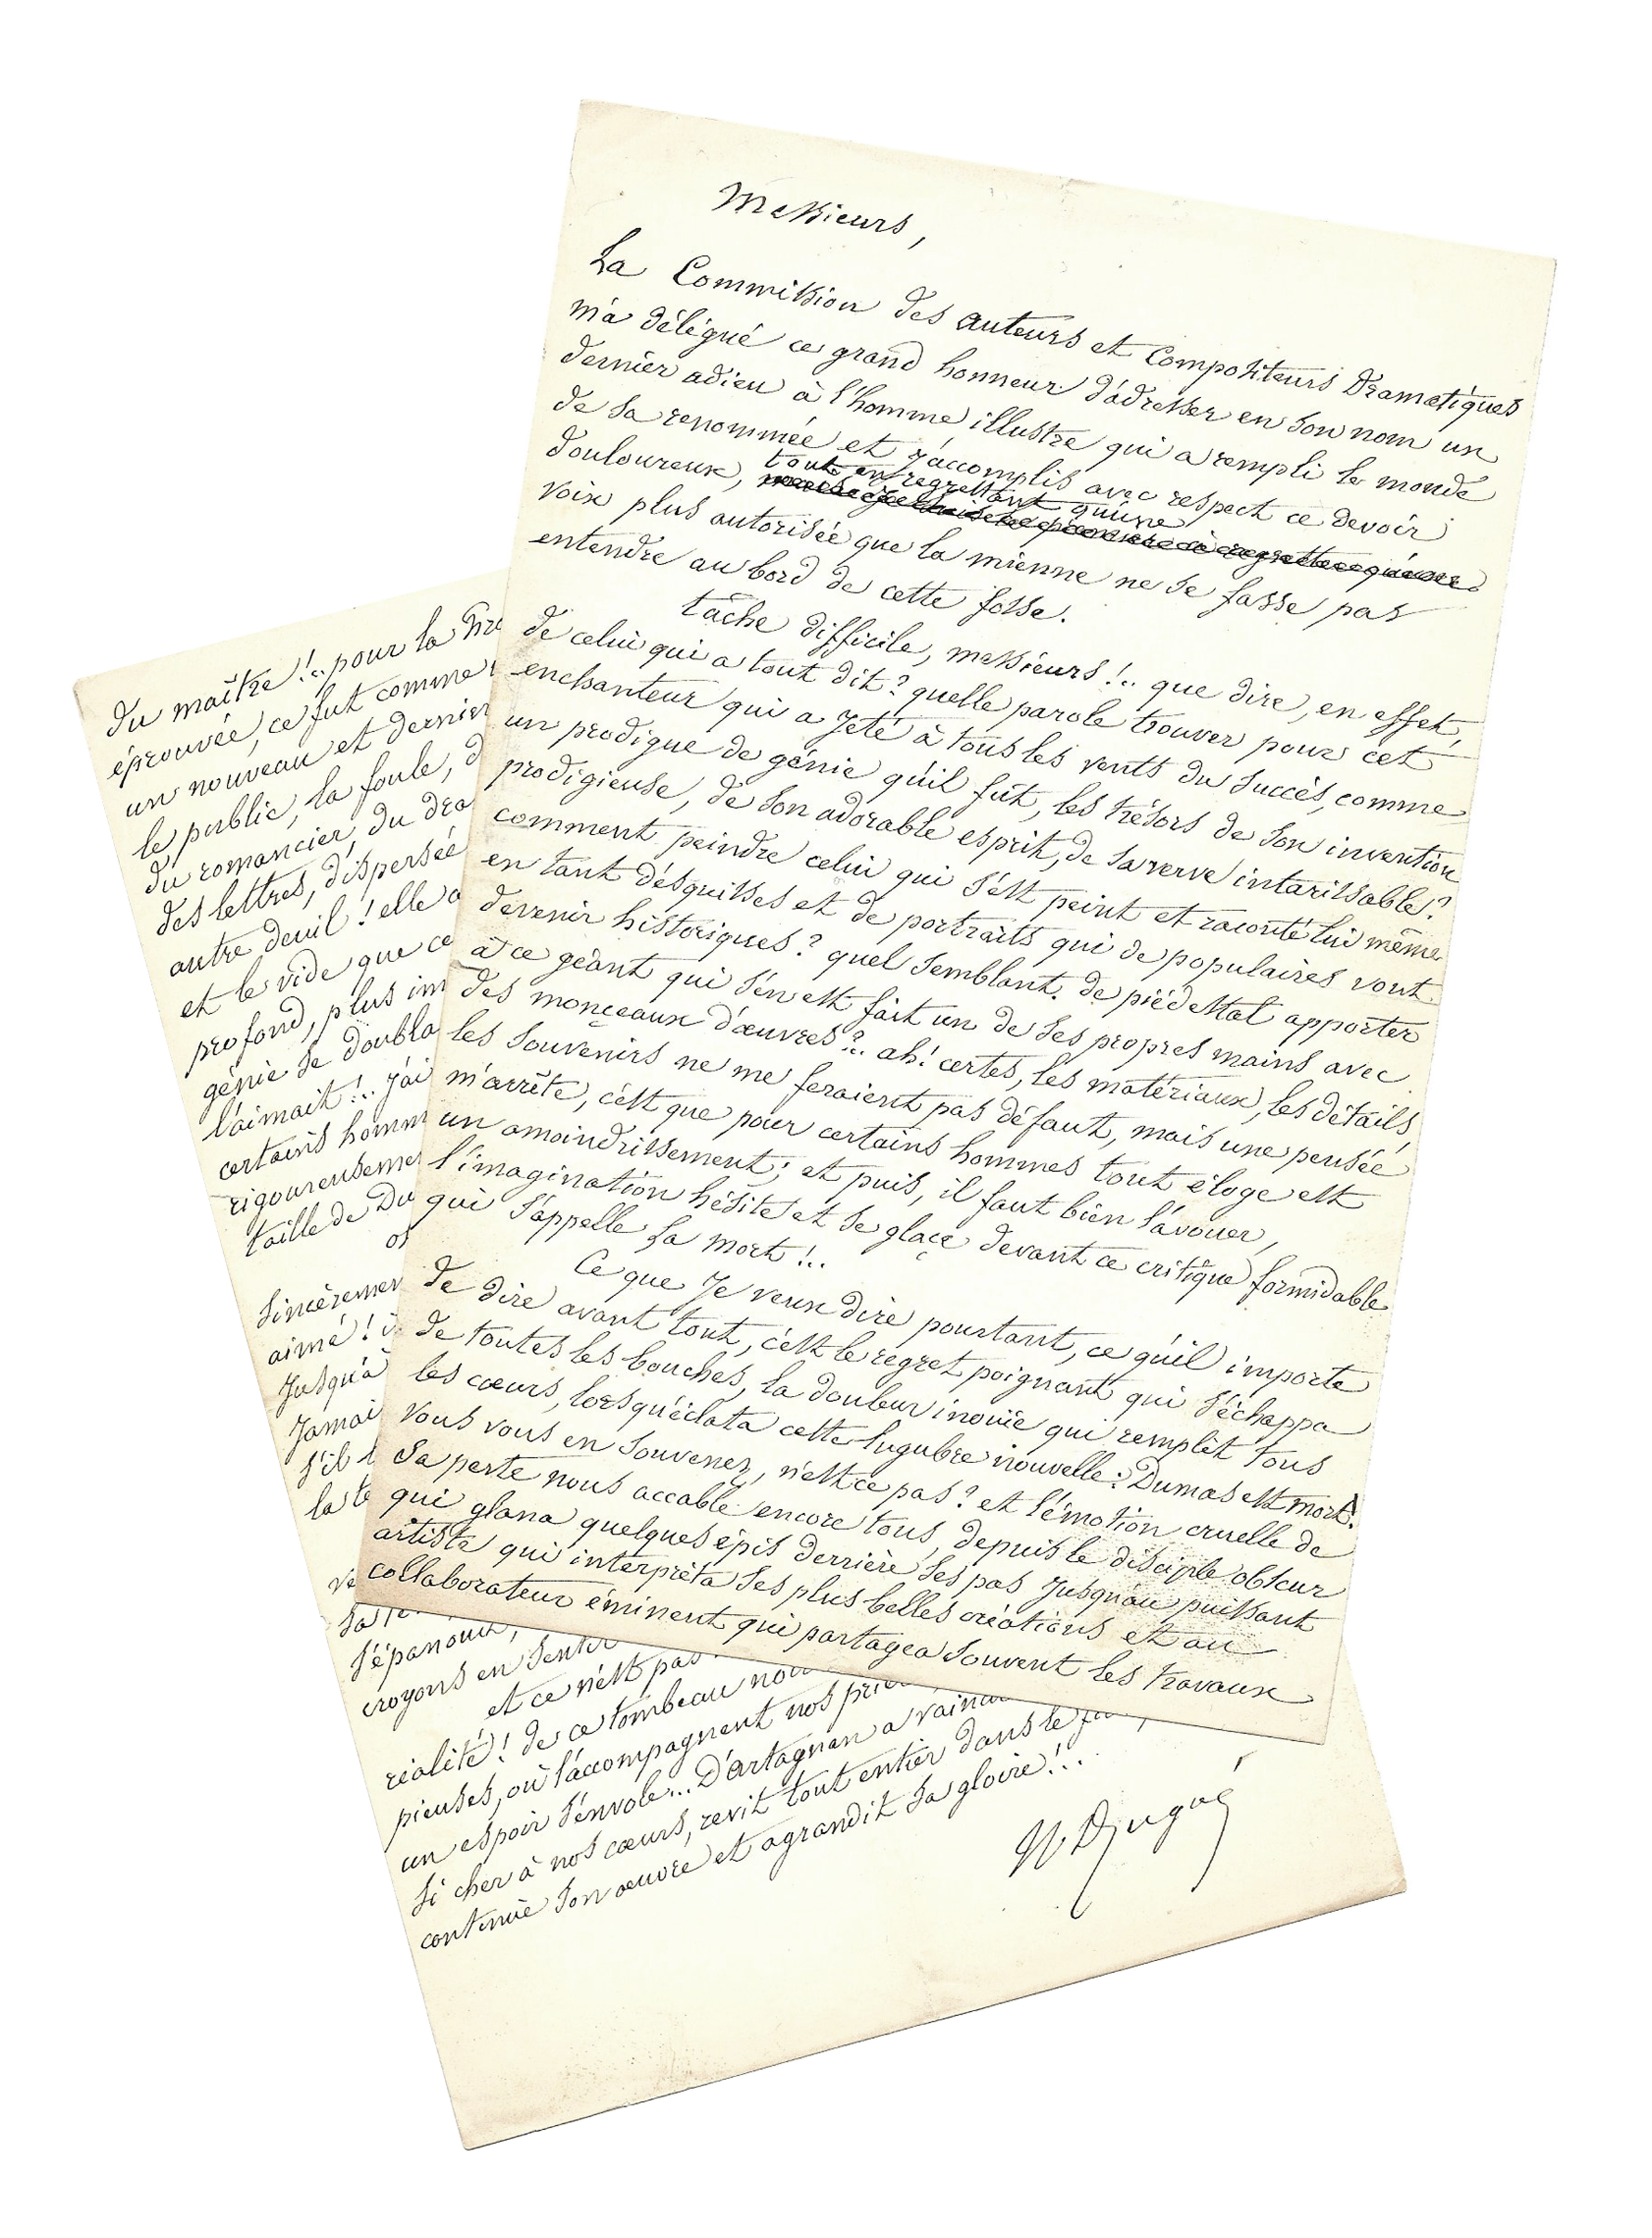 Messieurs,
La Commission des auteurs et Compositeurs Dramatiques
m'a délégué ce grand honneur d'adresser en son nom un
dernier adieu à l'homme illustre qui a rempli le monde
de sa renommée et j'accomplis avec respect ce devoir
douloureux, tout en regrettant qu'une
voix plus autorisée que la mienne ne se fasse pas
entendre au bord de cette fosse.
tâche difficile, messieurs!.. que dire, en effet,
de celui qui a tout dit? quelle parole trouver pour cet
enchanteur qui a jeté à tous les vents du succès, comme
un prodigue de génie qu'il fût, les trésors de son invention
prodigieuse, de son adorable esprit, de sa verve intarissable?
comment peindre celui qui s'est peint et raconté lui même
en tant d'esquisses et de portraits qui de populaires vont
devenir historiques? quel semblant de piédestal apporter
à ce géant qui s'en est fait un de ses propres mains avec
des monçeaux d'œuvres?.. ah! certes, les matériaux, les détails,
les souvenirs ne me feraient pas défaut, mais une pensée
m'arrête, c'est que pour certains hommes tout éloge est
un amoindrissement; et puis, il faut bien l'avouer,
l'imagination hésite et se glaçe devant ce critique formidable
qui s'appelle la mort!..
Ce que je veux dire pourtant, ce qu'il importe
de dire avant tout, c'est le regret poignant qui s'échappa
de toutes les bouches, la douleur inouïe qui remplit tous
les cœurs, lorsqu'éclata cette lugubre nouvelle: Dumas est mort!
vous vous en souvenez, n'est-ce pas? et l'émotion cruelle de
sa perte nous accable encore tous, depuis le disciple obscur
qui glana quelques épis derrière ses pas jusqu'au puissant
artiste qui interpréta ses plus belles créations et au
collaborateur éminent qui partagea souvent les travaux
du maître!.. pour la
éprouvée, ce fut comme
un nouveau et dernier
le public, la foule,
du romancier, du
des lettres, dispersée
autre deuil! elle
et le vide que
profond, plus
génie se
l'aimait!.. j'ai
certains
taille de
aimé!
jusqu'à
s'il
s'épanouir,
croyons en sentir
et ce n'est pas
réalité! de ce tombeau
pieuses, où l'accompagnent nos
un espoir s'envole... D'artagnan a
si cher à nos cœurs, revit tout entier dans le
continue son œuvre et agrandit sa gloire!..
Dugué